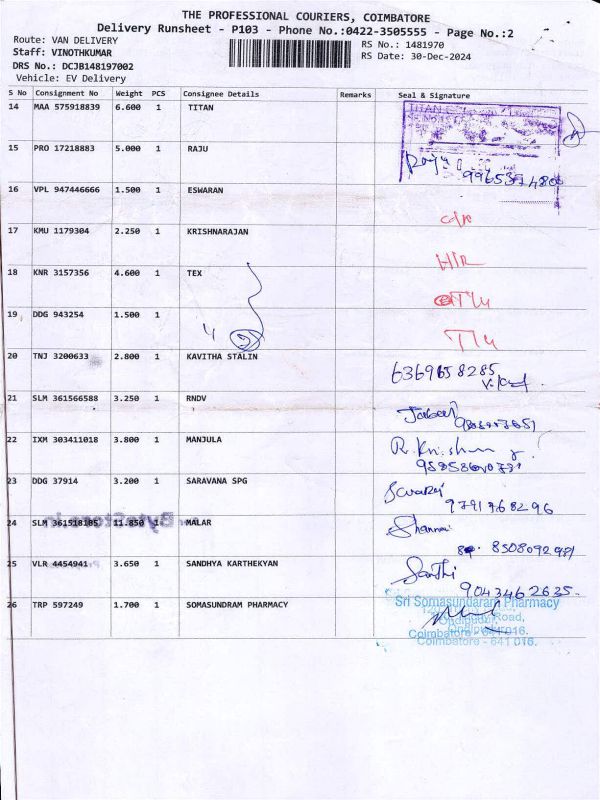 THE PROFESSIONAL COURIERS, COIMBATORE
Delivery Runsheet - P103 - Phone No.:0422-3505555 - Page No.:2
Route: VAN DELIVERY RS No.: 1481970
Staff: VINOTHKUMAR RS Date: 30-Dec-2024
DRS No.: DCJB148197002
Vehicle: EV Delivery
S No Consignment No Weight PCS Consignee Details Remarks Seal & Signature
14 MAA 575918839 6.600 1 TITAN
TITAN
15 PRO 17218883 5.000 1 RAJU
16 VPL 947446666 1.500 1 ESWARAN
17 KMU 1179304 2.250 1 KRISHNARAJAN
18 KNR 3157356 4.600 1 TEX
19 DDG 943254 1.500 1
20 TNJ 3200633 2.800 1 KAVITHA STALIN
6369658285
21 SLM 361566588 3.250 1 RNDV
22 IXM 303411018 3.800 1 MANJULA
23 DDG 37914 3.200 1 SARAVANA SPG
9791768296
24 SLM 361518105 11.850 1 MALAR
8508092981
25 VLR 4454941 3.650 1 SANDHYA KARTHEKYAN
Santhi
9043462635.
26 TRP 597249 1.700 1 SOMASUNDRAM PHARMACY
Sri Somasundaram Pharmacy
Road,
Coimbatore - 641 016.
Coimbatore - 641 016.